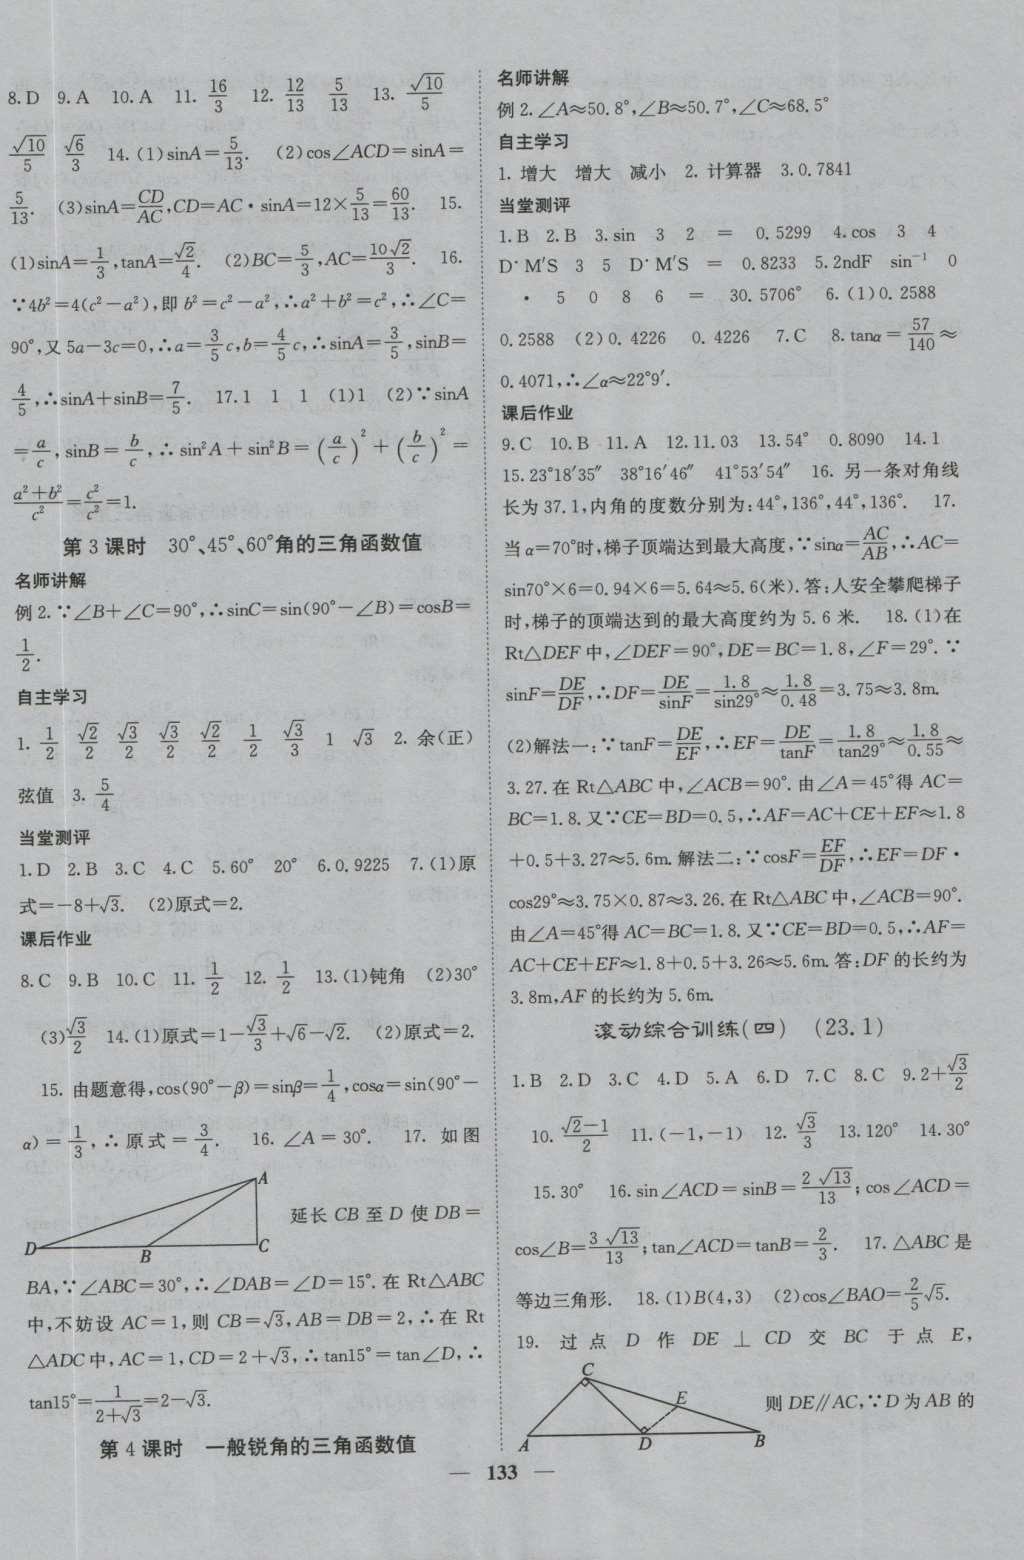 8.D 9.A 10.A 11. 16/3 12. 12/13 5/13 13. √10/5
√10/5 √6/3 14.(1)sinA=5/13. (2)cos∠ACD=sinA=
5/13. (3)sinA=CD/AC,CD=AC·sinA=12×5/13=60/13. 15.
(1)sinA=1/3,tanA=√2/4. (2)BC=5/3,AC=10√2/3. 16.
∵4b²=4(c²-a²),即b²=c²-a²,∴a²+b²=c²,∴∠C=
90°,又5a-3c=0,∴a=3/5c,b=4/5c,∴sinA=3/5,sinB=
4/5,∴sinA+sinB=7/5. 17.1 1 1 (1)1 (2)∵sinA
=a/c,sinB=b/c,∴sin²A+sin²B=(a/c)²+(b/c)²=
(a²+b²)/c²=c²/c²=1.
第3课时 30°、45°、60°角的三角函数值
名师讲解
例2.∵∠B+∠C=90°,∴sinC=sin(90°-∠B)=cosB=
1/2.
自主学习
1. 1/2 √2/2 √3/2 √3/2 √2/2 1/2 √3/3 1 √3 2. 余(正)
弦值 3. 5/4
当堂测评
1.D 2.B 3.C 4.C 5.60° 20° 6.0.9225 7.(1)原
式=-8+√3. (2)原式=2.
课后作业
8.C 9.B 10.C 11. 1/2 12. 1/2 13.(1)钝角 (2)30°
(3)√3/2 14.(1)原式=1-√3/3+√6-√2. (2)原式=2.
15. 由题意得,cos(90°-β)=sinβ=1/4,cosα=sin(90°-
α)=1/3,∴原式=3/4. 16. ∠A=30°. 17. 如图
A
D B C
延长CB至D使DB=
BA,∵∠ABC=30°,∴∠DAB=∠D=15°.在Rt△ABC
中,不妨设AC=1,则CB=√3,AB=DB=2,∴在Rt
△ADC中,AC=1,CD=2+√3,∴tan15°=tan∠D,∴
tan15°=1/(2+√3)=2-√3.
第4课时 一般锐角的三角函数值
名师讲解
例2.∠A≈50.8°,∠B≈50.7°,∠C≈68.5°
自主学习
1. 增大 增大 减小 2. 计算器 3.0.7841
当堂测评
1.B 2.B 3.sin 3 2 = 0.5299 4.cos 3 4
D·M′S 3 5 D·M′S = 0.8233 5.2ndF sin⁻¹ 0
· 5 0 8 6 = 30.5706° 6.(1)0.2588
0.2588 (2)0.4226 0.4226 7.C 8.tanα=57/140≈
0.4071,∴∠α≈22°9′.
课后作业
9.C 10.B 11.A 12.11.03 13.54° 0.8090 14.1
15.23°18′35″ 38°16′46″ 41°53′54″ 16. 另一条对角线
长为37.1,内角的度数分别为:44°,136°,44°,136°. 17.
当α=70°时,梯子顶端达到最大高度,∵sinα=AC/AB,∴AC=
sin70°×6=0.94×6=5.64≈5.6(米).答:人安全攀爬梯子
时,梯子的顶端达到的最大高度约为5.6米. 18.(1)在
Rt△DEF中,∠DEF=90°,DE=BC=1.8,∠F=29°.∵
sinF=DE/DF,∴DF=DE/sinF=1.8/sin29°≈1.8/0.48=3.75≈3.8m.
(2)解法一:∵tanF=DE/EF,∴EF=DE/tanF=1.8/tan29°≈1.8/0.55≈
3.27.在Rt△ABC中,∠ACB=90°.由∠A=45°得AC=
BC=1.8.又∵CE=BD=0.5,∴AF=AC+CE+EF≈1.8
+0.5+3.27≈5.6m.解法二:∵cosF=EF/DF,∴EF=DF·
cos29°≈3.75×0.87≈3.26.在Rt△ABC中,∠ACB=90°.
由∠A=45°得AC=BC=1.8.又∵CE=BD=0.5,∴AF=
AC+CE+EF≈1.8+0.5+3.26≈5.6m.答:DF的长约为
3.8m,AF的长约为5.6m.
滚动综合训练(四) (23.1)
1.B 2.D 3.C 4.D 5.A 6.D 7.C 8.C 9.2+√3/2
10. (√2-1)/2 11.(-1,-1) 12. √3/3 13.120° 14.30°
15.30° 16.sin∠ACD=sinB=2√13/13;cos∠ACD=
cos∠B=3√13/13;tan∠ACD=tanB=2/3. 17.△ABC是
等边三角形. 18.(1)B(4,3) (2)cos∠BAO=2/5√5.
19. 过点D作DE⊥CD交BC于点E,
C
E
A D B
则DE∥AC,∵D为AB的
— 133 —